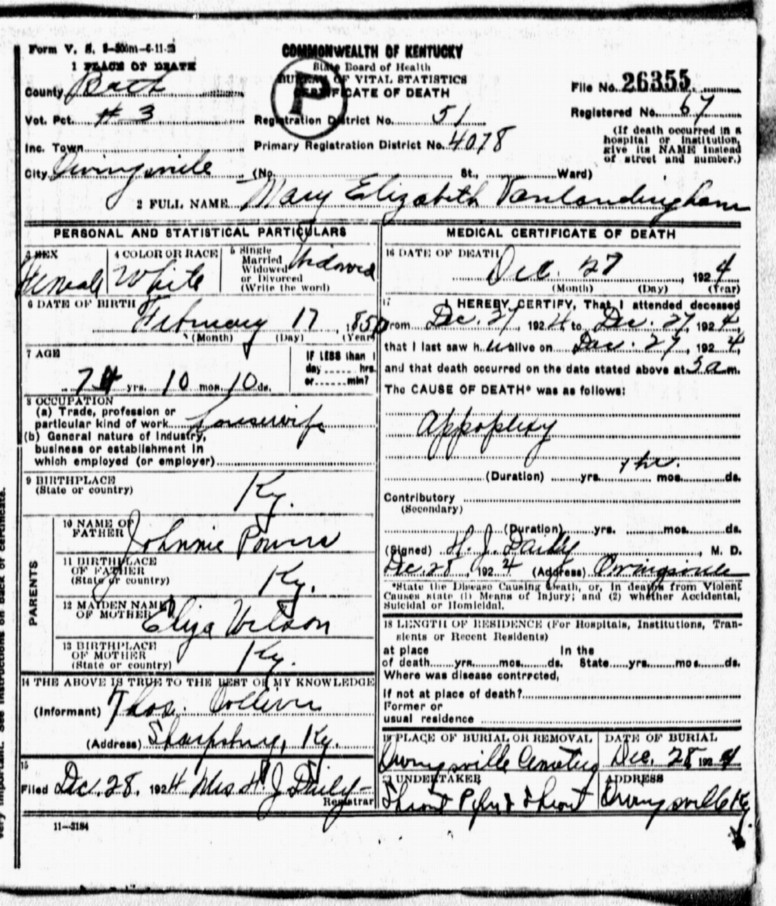 Form V. S. 1-50m-6-11-23
COMMONWEALTH OF KENTUCKY
State Board of Health
BUREAU OF VITAL STATISTICS
CERTIFICATE OF DEATH
P
1 PLACE OF DEATH
County Bath
Vot. Pct. #3
Inc. Town
City Owingsville (No. St., Ward)
Registration District No. 51
Primary Registration District No. 4078
File No. 26355
Registered No. 67
(If death occurred in a
hospital or institution,
give its NAME instead
of street and number.)
2 FULL NAME Mary Elizabeth Vanlandingham
PERSONAL AND STATISTICAL PARTICULARS
3 SEX Female
4 COLOR OR RACE White
5 Single
Married
Widowed
or Divorced
(Write the word)
Widowed
6 DATE OF BIRTH
February 17, 1850
(Month) (Day) (Year)
7 AGE
74 yrs. 10 mos. 10 ds.
IF LESS than 1
day hrs.
or min?
8 OCCUPATION
(a) Trade, profession or
particular kind of work Housewife
(b) General nature of industry,
business or establishment in
which employed (or employer)
9 BIRTHPLACE
(State or country) Ky.
PARENTS
10 NAME OF
FATHER Johnnie Powers
11 BIRTHPLACE
OF FATHER
(State or country) Ky.
12 MAIDEN NAME
OF MOTHER Eliza Wilson
13 BIRTHPLACE
OF MOTHER
(State or country) Ky.
14 THE ABOVE IS TRUE TO THE BEST OF MY KNOWLEDGE
(Informant) Thos.
(Address) Sharpsburg, Ky.
15
Filed Dec. 28, 1924 Mrs H J Daily
Registrar
11-3184
MEDICAL CERTIFICATE OF DEATH
16 DATE OF DEATH
Dec. 27, 1924
(Month) (Day) (Year)
17 I HEREBY CERTIFY, That I attended deceased
from Dec. 27, 1924 to Dec. 27, 1924,
that I last saw her alive on Dec. 27, 1924,
and that death occurred on the date stated above at 3 a m.
The CAUSE OF DEATH* was as follows:
Appoplexy
(Duration) yrs. mos. ds. 1 hr.
Contributory
(Secondary)
(Duration) yrs. mos. ds.
(Signed) H. J. Daily, M. D.
Dec. 28, 1924 (Address) Owingsville
*State the Disease Causing Death, or, in deaths from Violent
Causes state (1) Means of Injury; and (2) whether Accidental,
Suicidal or Homicidal.
18 LENGTH OF RESIDENCE (For Hospitals, Institutions, Tran-
sients or Recent Residents)
at place In the
of death yrs. mos. ds. State yrs. mos. ds.
Where was disease contrected,
if not at place of death?
Former or
usual residence
19 PLACE OF BURIAL OR REMOVAL
Owingsville Cemetery
DATE OF BURIAL
Dec. 28 1924
UNDERTAKER
ADDRESS
Owingsville Ky.